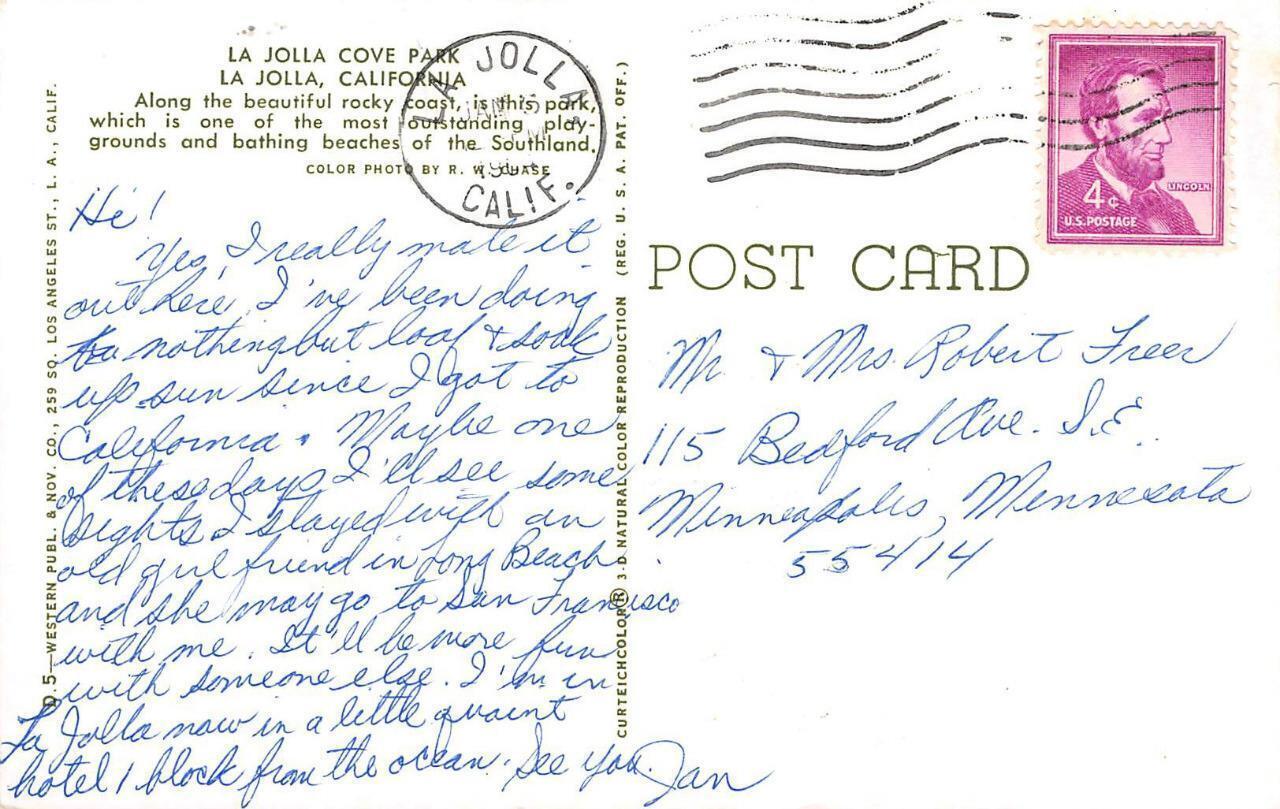 LA JOLLA COVE PARK
LA JOLLA, CALIFORNIA
Along the beautiful rocky coast, is this park,
which is one of the most outstanding play-
grounds and bathing beaches of the Southland.
COLOR PHOTO BY R. W. CHASE
LA JOLLA
JAN
CALIF.
4¢
LINCOLN
U.S. POSTAGE
POST CARD
Hi!
Yes, I really made it
out here. I've been doing
nothing but loaf & soak
up sun since I got to
California. Maybe one
of these days I'll see some
sights. I stayed with an
old girl friend in Long Beach
and she may go to San Francisco
with me. It'll be more fun
with someone else. I'm in
La Jolla now in a little quaint
hotel 1 block from the ocean. See you.
Jan
Mr. & Mrs. Robert Freer
115 Bedford Ave. S.E.
Minneapolis, Minnesota
55414
D.5—WESTERN PUBL. & NOV. CO., 259 SO. LOS ANGELES ST., L. A., CALIF.
CURTEICHCOLOR ® 3-D NATURAL COLOR REPRODUCTION (REG. U. S. A. PAT. OFF.)